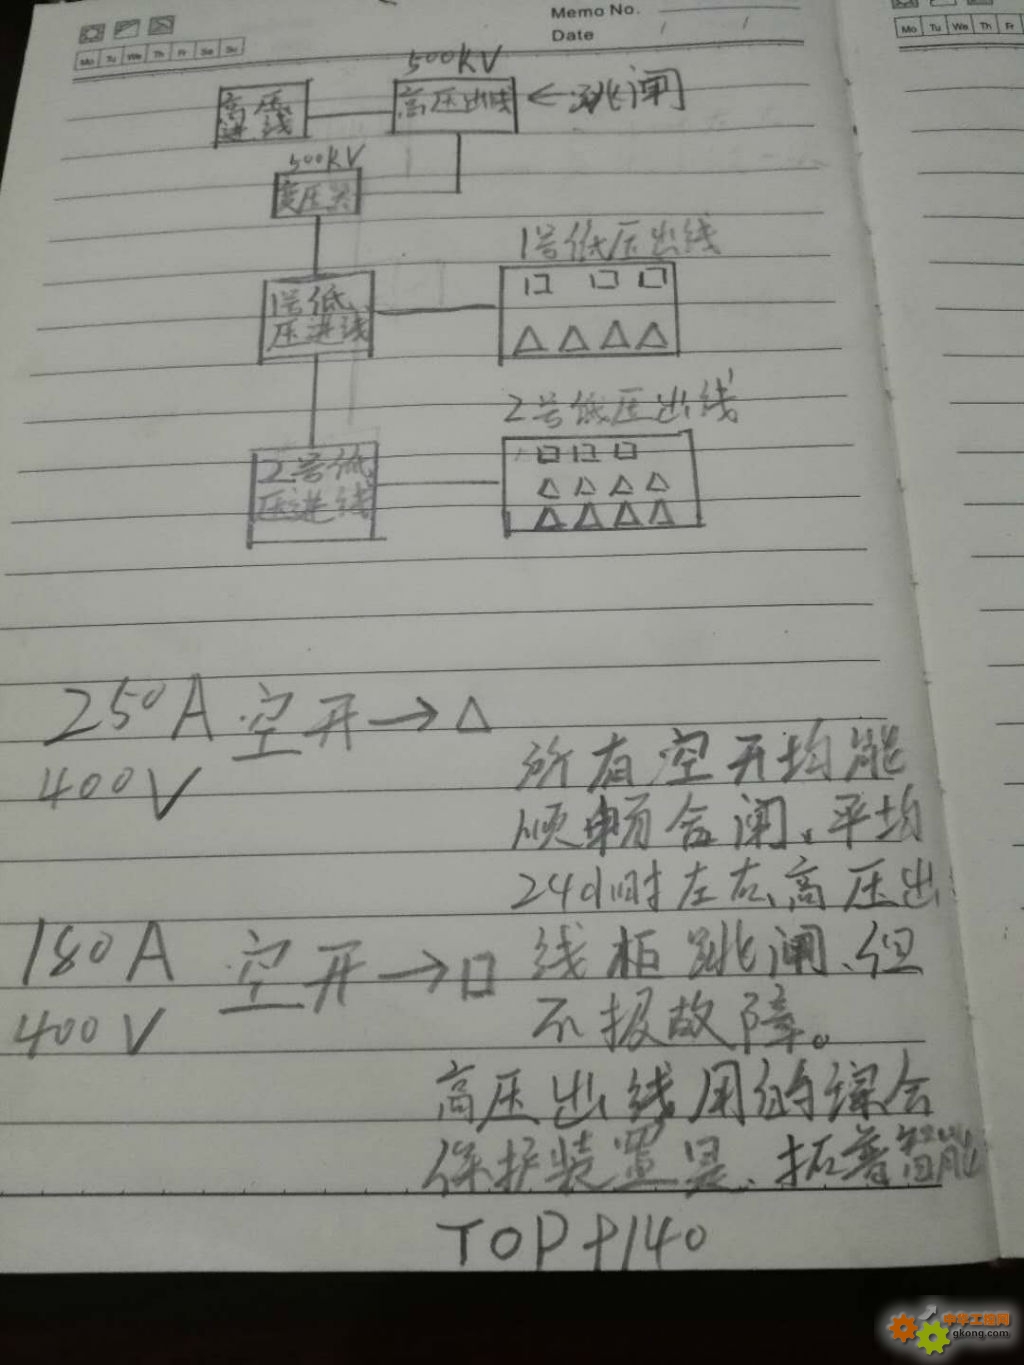 Memo No.
Date
Mo Tu We Th Fr Sa Su
Mo Tu We Th Fr
500KV
高压
进线
高压出线
←跳闸
500KV
变压器
1号低压出线
1号低
压进线
2号低压出线
2号低
压进线
250A 空开→△
400V
所有空开均能
顺畅合闸、平均
24小时左右、高压出
180A 空开→口
400V
线柜跳闸、但
不报故障。
高压出线用的综合
保护装置是、拓普智能
TOP+140
中华工控网
gkong.com